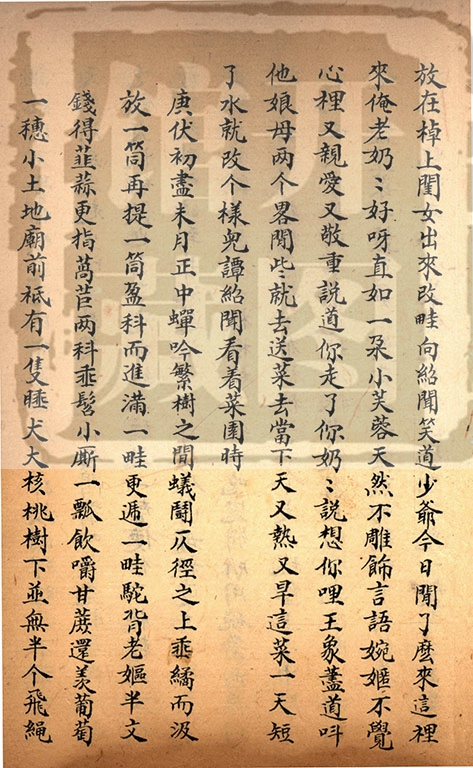 放在棹上閨女出來改畦向紹聞笑道少爺今日閒了麽來這裡
來俺老奶〻好呀直如一朶小芙蓉天然不雕飾言語婉嫕不覺
心裡又親愛又敬重説道你走了你奶〻説想你哩王象藎道呌
他娘母両个畧閒些就去送菜去當下天又熱又旱這菜一天短
了水就改个様兒譚紹聞看着菜園時
庚伏初盡未月正中蟬吟繁樹之間蟻鬬仄徑之上乖繘而汲
放一筒再提一筒盈科而進滿一畦更遞一畦駝背老嫗半文
錢得韮蒜更指萵苣両科乖髫小廝一瓢飲嚼甘蔗還羡葡萄
一穗小土地廟前祗有一隻睡犬大核桃樹下並無半个飛繩
开图
馆藏